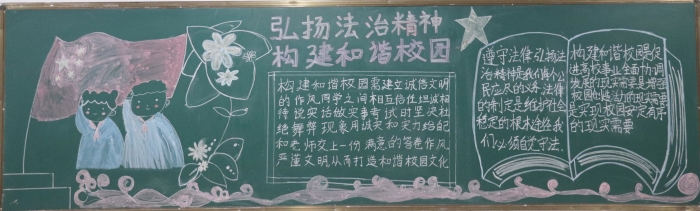 弘扬法治精神
构建和谐校园
构建和谐校园需建立诚信文明
的作风同学之间相互信任坦诚相
待说实话做实事考试时坚决杜
绝舞弊现象用诚实和实力给自己
和老师交上一份满意的答卷作风
严谨文明从而打造和谐校园文化
遵守法律,弘扬法
治精神是我们每个公
民应尽的义务法律
的制定是维护社会
稳定的根本途径我
们必须自觉守法.
构建和谐校园是促
进高校事业全面协调
发展的现实需要是增强
校园创造活力的现实需要
是实现校园安定有序
的现实需要